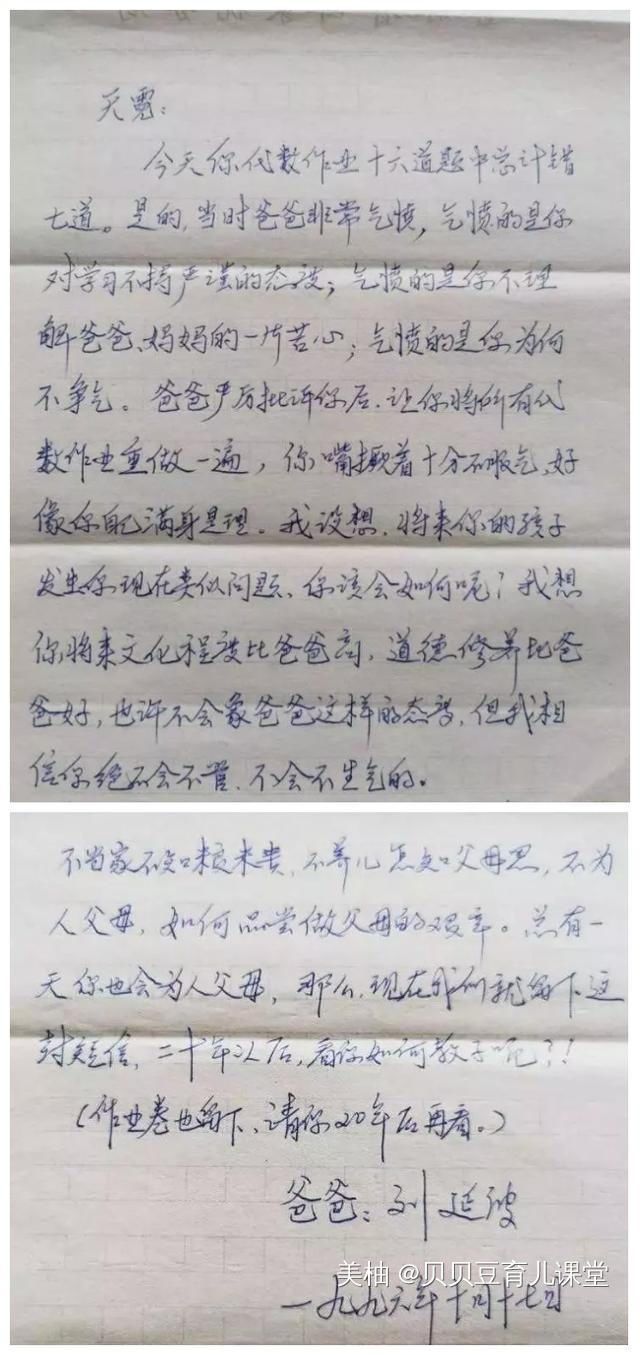 天霓:
今天你代数作业十六道题中总计错
七道。是的,当时爸爸非常气愤,气愤的是你
对学习不持严谨的态度;气愤的是你不理
解爸爸、妈妈的一片苦心;气愤的是你为何
不争气。爸爸严厉批评你后,让你将所有代
数作业重做一遍,你嘴撅着十分不服气,好
像你自己满身是理。我设想,将来你的孩子
发生你现在类似问题、你该会如何呢?我想
你将来文化程度比爸爸高,道德修养比爸
爸好,也许不会象爸爸这样的态度,但我相
信你绝不会不管,不会不生气的。
不当家不知柴米贵,不养儿怎知父母恩,不为
人父母,如何品尝做父母的艰辛。总有一
天你也会为人父母,那么,现在我们就留下这
封短信,二十年以后,看你如何教子呢?!!
(作业卷也留下、请你20年后再看。)
爸爸:刘延波
美柚 @贝贝豆育儿课堂
一九九六年十月十七日